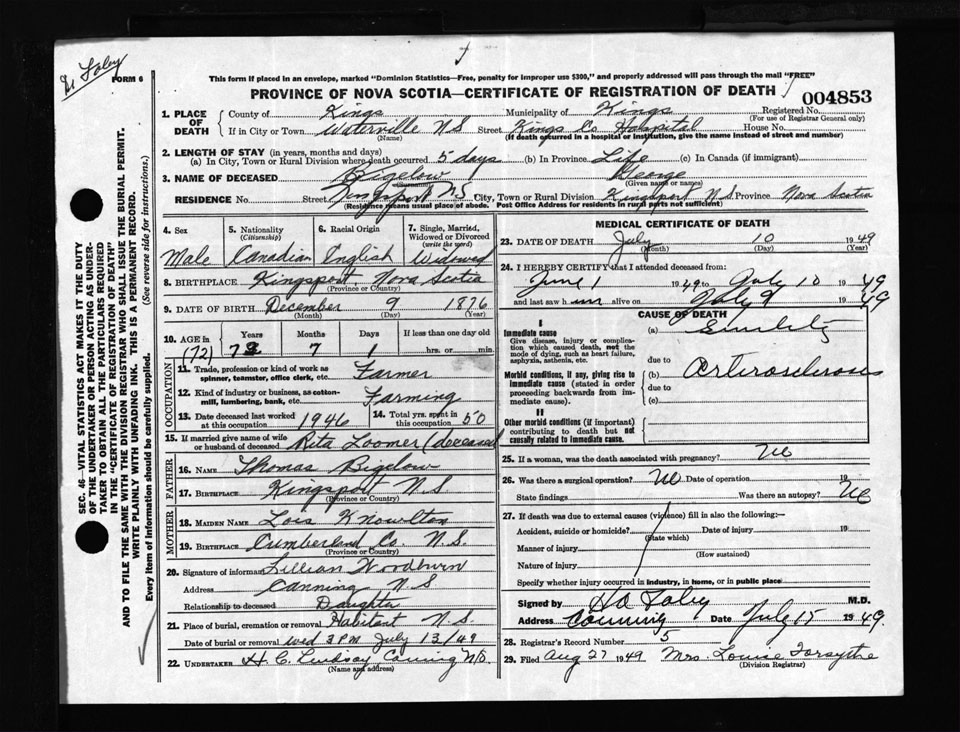 Dr Foley
FORM 6
This form if placed in an envelope, marked "Dominion Statistics—Free, penalty for improper use $300," and properly addressed will pass through the mail "FREE"
PROVINCE OF NOVA SCOTIA—CERTIFICATE OF REGISTRATION OF DEATH
004853
1. PLACE OF DEATH
County of Kings Municipality of Kings Registered No.
(For use of Registrar General only)
If in City or Town Waterville N S Street Kings Co Hospital House No.
(Name) (If death occurred in a hospital or institution, give the name instead of street and number)
2. LENGTH OF STAY (in years, months and days)
(a) In City, Town or Rural Division where death occurred 5 days (b) In Province Life (c) In Canada (if immigrant)
3. NAME OF DECEASED Bigelow George
(Surname) (Given name or names)
RESIDENCE No. Street Kingsport N S City, Town or Rural Division Kingsport N S. Province Nova Scotia
(Residence means usual place of abode. Post Office Address for residents in rural parts not sufficient)
4. Sex
Male
5. Nationality
(Citizenship)
Canadian
6. Racial Origin
English
7. Single, Married, Widowed or Divorced
(write the word)
Widowed
8. BIRTHPLACE Kingsport, Nova Scotia
(Province or Country)
9. DATE OF BIRTH December 9 1876
(Month) (Day) (Year)
10. AGE in Years Months Days If less than one day
(72) 7 1 hrs. or min.
OCCUPATION
11. Trade, profession or kind of work as spinner, teamster, office clerk, etc. Farmer
12. Kind of industry or business, as cotton-mill, lumbering, bank, etc. Farming
13. Date deceased last worked at this occupation 1946
14. Total yrs. spent in 50
15. If married give name of wife or husband of deceased Rita Loomer (deceased)
FATHER
16. NAME Thomas Bigelow
17. BIRTHPLACE Kingsport N S
(Province or Country)
MOTHER
18. MAIDEN NAME Lois Knowlton
19. BIRTHPLACE Cumberland Co. N. S.
(Province or Country)
20. Signature of informant Lillian
Address Canning N. S
Relationship to deceased Daughter
21. Place of burial, cremation or removal Habitant N. S.
Date of burial or removal Wed 3 PM July 13/49
22. UNDERTAKER H. C. Lindsay Canning N.S.
(Name and address)
MEDICAL CERTIFICATE OF DEATH
23. DATE OF DEATH July 10 1949
(Month) (Day) (Year)
24. I HEREBY CERTIFY that I attended deceased from:
June 1 1949 to July 10 1949
and last saw him alive on July 9 1949
CAUSE OF DEATH
I
Immediate cause
Give disease, injury or complication which caused death, not the mode of dying, such as heart failure, asphyxia, asthenia, etc.
(a) Senility
due to
Morbid conditions, if any, giving rise to immediate cause (stated in order proceeding backwards from immediate cause).
(b) Arteriosclerosis
due to
(c)
II
Other morbid conditions (if important) contributing to death but not causally related to immediate cause.
25. If a woman, was the death associated with pregnancy? No
26. Was there a surgical operation? No Date of operation 19
State findings Was there an autopsy? No
27. If death was due to external causes (violence) fill in also the following:—
Accident, suicide or homicide? Date of injury 19
(State which)
Manner of injury
(How sustained)
Nature of injury
Specify whether injury occurred in industry, in home, or in public place
Signed by M.D.
Address Canning Date July 15 1949.
28. Registrar's Record Number 5
29. Filed Aug 27 1949 Mrs. Louise Forsythe
(Division Registrar)
SEC. 46—VITAL STATISTICS ACT MAKES IT THE DUTY
OF THE UNDERTAKER OR PERSON ACTING AS UNDER-
TAKER TO OBTAIN ALL THE PARTICULARS REQUIRED
IN THE "CERTIFICATE OF REGISTRATION OF DEATH"
AND TO FILE THE SAME WITH THE DIVISION REGISTRAR WHO SHALL ISSUE THE BURIAL PERMIT.
WRITE PLAINLY WITH UNFADING INK. THIS IS A PERMANENT RECORD.
Every item of information should be carefully supplied. (See reverse side for instructions.)